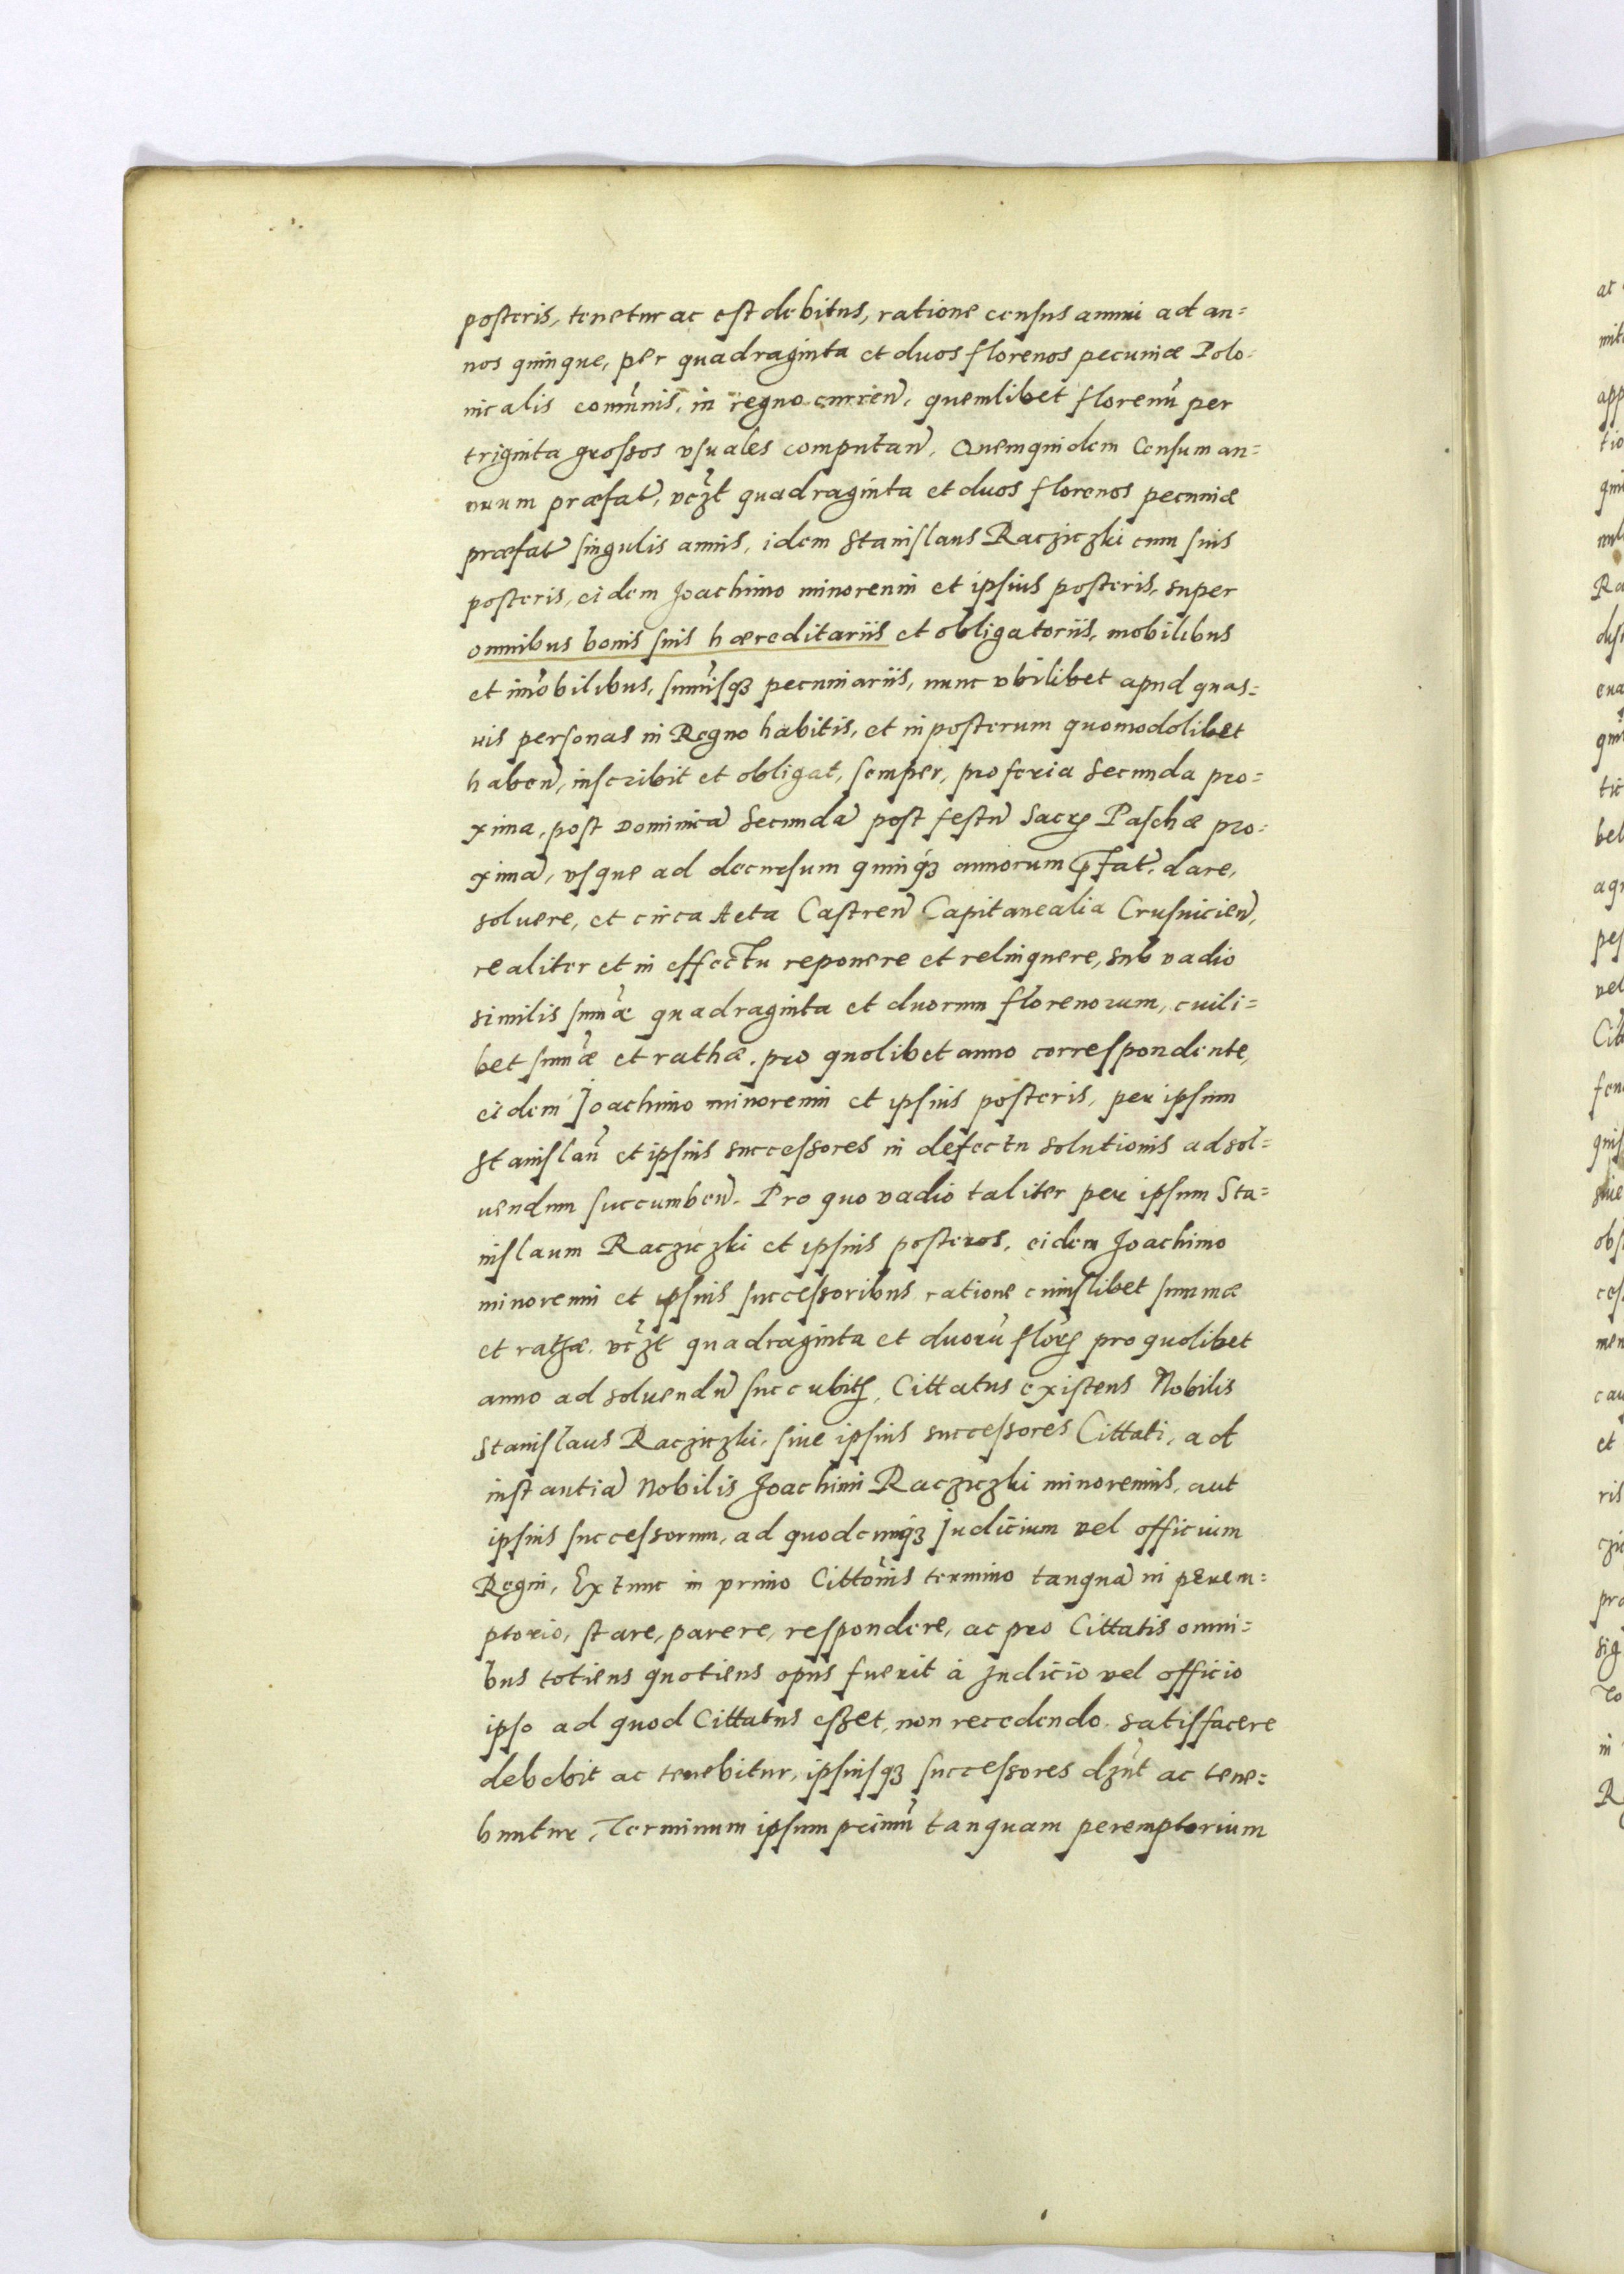 posteris, tenetur ac est debitus, ratione census annui ad an=
nos quinque, per quadraginta et duos florenos pecuniæ Polo=
nicalis com̃unis, in regno currenẽ, quemlibet florenũ per
triginta grossos vsuales computanẽ. Quemquidem Censum an=
nuum præfatẽ, vcz̃t quadraginta et duos florenos pecuniæ
præfatẽ singulis annis, idem Stanislaus Racziczki cum suis
posteris, eidem Joachimo minorenni et ipsius posteris, super
omnibus bonis suis hæreditariis et obligatoriis, mobilibus
et im̃obilibus, sum̃isqȝ pecuniariis, nunc vbilibet apud quas=
uis personas in Regno habitis, et in posterum quomodolibet
habenẽ, inscribit et obligat, semper, pro feria secunda pro=
xima, post Dominicã Secundã post festũ Sacrꝝ Paschæ pro=
ximã, vsque ad decursum quinqȝ annorum p̃fatẽ. dare,
soluere, et circa Acta Castrenẽ Capitanealia Crusuicienẽ,
realiter et in effectu reponere et relinquere, sub vadio
similis sum̃æ quadraginta et duorum florenorum, cuili=
bet sum̃æ et rathæ. pro quolibet anno correspondente,
eidem Joachimo minorenni et ipsius posteris, per ipsum
Stanislaũ et ipsius successores in defectu solutionis ad sol=
uendum succumbenẽ. Pro quo vadio taliter per ipsum Sta=
nislaum Racziczki et ipsius posteros, eidem Joachimo
minorenni et ipsius successoribus ratione cuiuslibet summæ
et rathæ. vcz̃t quadraginta et duorũ flõrꝝ pro quolibet
anno ad soluendũ succubitꝝ, Cittatus existens Nobilis
Stanislaus Racziczki, siue ipsius successores Cittati, ad
instantiã Nobilis Joachimi Racziczki minorennis, aut
ipsius successorum, ad quodcunqȝ Judicium vel officium
Regni, Extunc in primo Cittõnis termino tanquã in perem=
ptorio, stare, parere, respondere, ac pro Cittatis omni=
bus totiens quotiens opus fuerit à Judicio vel officio
ipso ad quod Cittatus esset, non recedendo. satisfacere
debebit ac tenebitur, ipsiusqȝ successores dz̃nt ac tene=
buntur, Terminum ipsum primũ tanquam peremptorium